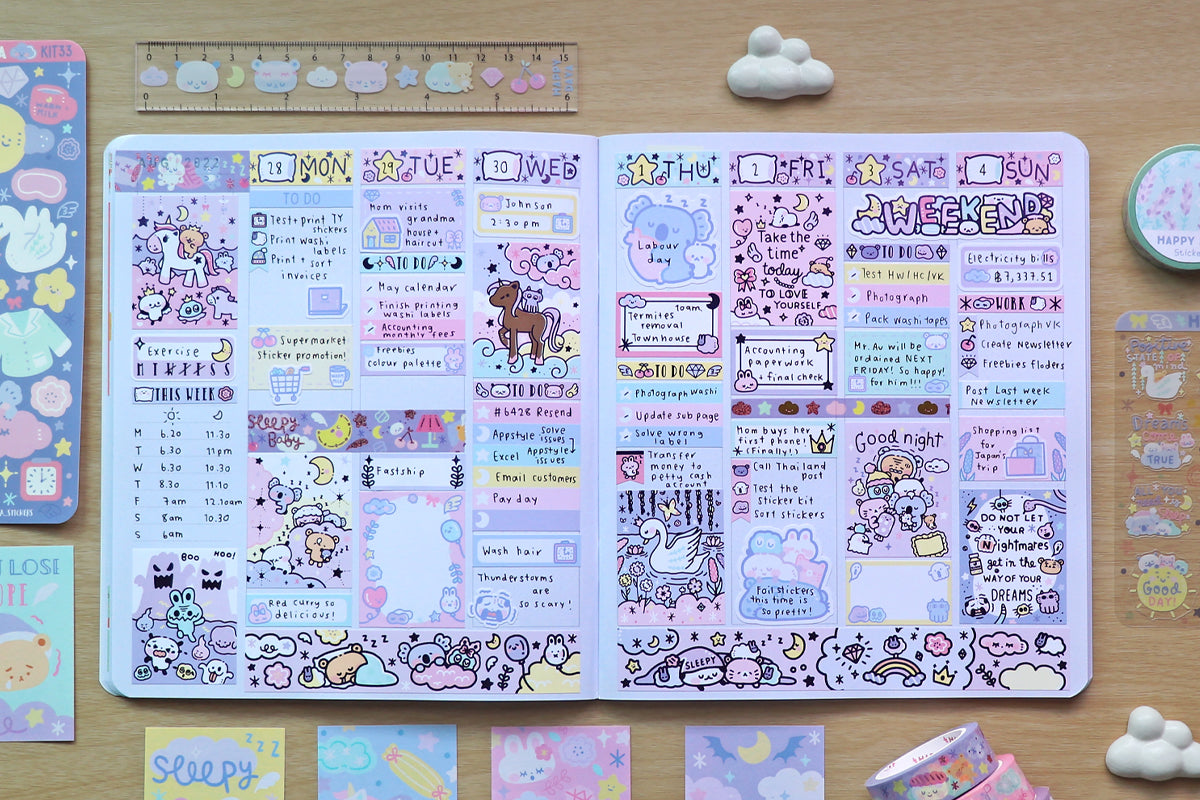 KIT33
WARM MILK
0 1 2 3 4 5 6 7 8 9 10 11 12 13 14 15
0 1 2 4 5 6
28 MON
TO DO
Test + print TY
stickers
Print washi
labels
Print + sort
invoices
Supermarket
sticker promotion!
Sleepy
Baby
Red curry so
delicious!
Exercise
M T W T F S S
THIS WEEK
M 6.20 11.30
T 6.30 11pm
W 6.30 10.30
T 8.30 11.10
F 7am 12.10am
S 8am 10.30
S 6am
BOO HOO!
29 TUE
Mom visits
grandma
house +
haircut
TO DO
May calendar
Finish printing
washi labels
Accounting
monthly fees
Freebies
colour palette
Fastship
30 WED
Johnson
2:30pm
TO DO
#6428 Resend
Appstyle solve
issues
Excel Appstyle
issues
Email customers
Pay day
Wash hair
Thunderstorms
are
so scary!
ZZZ
1 THU
Labour
day
10am
Termites
removal
Townhouse
TO DO
Photograph washi
Update sub page
Solve wrong
label
Transfer
money to
petty cash
account
2 FRI
Take the
time
today
TO LOVE
YOURSELF
Accounting
paperwork
+ final check
Mom buys her
first phone!
(Finally!)
Call Thailand
post
Test the
sticker kit
Sort stickers
Foil stickers
this time is
so pretty!
3 SAT
WEEKEND
TO DO
Test HW/HC/VK
Photograph
Pack washi tapes
Mr. Au will be
ordained NEXT
FRIDAY! So happy!
for him!!!
Good night
4 SUN
Electricity bills
฿7,337.51
WORK
Photograph VK
Create Newsletter
Freebies floders
Post Last week
Newsletter
Shopping list
for
Japan's
trip
DO NOT LET
YOUR
Nightmares
get in the
WAY OF YOUR
DREAMS
SLEEPY
ZZZ
HAPPY
Positive
STATE OF
mind
Dreams
COME
TRUE
Good
DAY!
_STICKERS
LOSE
Sleepy
ZZZ